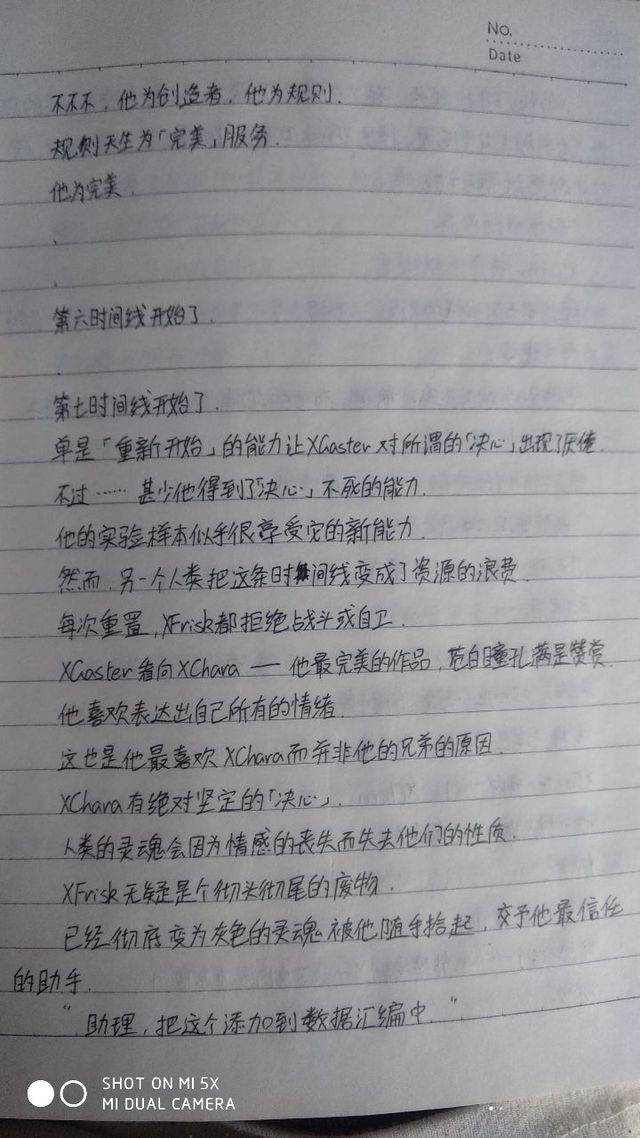 No.
Date
不不不，他为创造者，他为规则.
规则天生为「完美」服务.
他为完美.
.
.
第六时间线开始了.
.
第七时间线开始了.
单是「重新开始」的能力让XGaster对所谓的「决心」出现了厌倦.
不过……甚少他得到了「决心」不死的能力.
他的实验样本似乎很享受它的新能力.
然而,另一个人类把这条时间线变成了资源的浪费.
每次重置,XFrisk都拒绝战斗或自卫.
XGaster看向XChara — 他最完美的作品,苍白瞳孔满是赞赏.
他喜欢表达出自己所有的情绪.
这也是他最喜欢XChara而并非他的兄弟的原因.
XChara有绝对坚定的「决心」.
人类的灵魂会因为情感的丧失而失去他们的性质.
XFrisk无疑是个彻头彻尾的废物.
已经彻底变为灰色的灵魂被他随手拾起，交予他最信任
的助手.
"助理，把这个添加到数据汇编中."
SHOT ON MI 5X
MI DUAL CAMERA